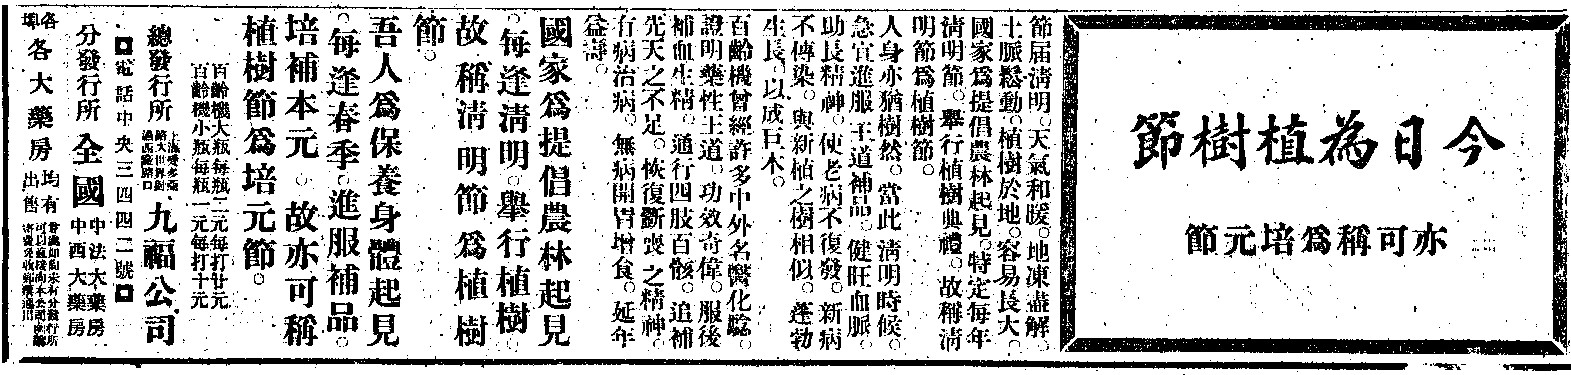 今日為植樹節
亦可稱爲培元節
節届淸明。天氣和暖。地凍盡解。
土脈鬆動。植樹於地。容易長大。
國家爲提倡農林起見。特定每年
淸明節。舉行植樹典禮。故稱淸
明節爲植樹節。
人身亦猶樹然。當此淸明時候。
急宜進服王道補品。健旺血脈。
助長精神。使老病不復發。新病
不傳染。與新植之樹相似。蓬勃
生長。以成巨木。
百齡機曾經許多中外名醫化驗。
證明藥性王道。功效奇偉。服後
補血生精。通行四肢百骸。追補
先天之不足。恢復斷喪之精神。
有病治病。無病開胃增食。延年
益壽。
國家爲提倡農林起見
。每逢淸明。舉行植樹。
故稱淸明節爲植樹
節。
吾人爲保養身體起見
。每逢春季。進服補品。
培補本元。故亦可稱
植樹節爲培元節。
百齡機大瓶每瓶二元每打廿元
百齡機小瓶每瓶一元每打十元
總發行所 上海愛多亞路大世界對過西藏路口 九福公司
電話中央三四四二號
分發行所 全國 中法大藥房 中西大藥房
各埠各大藥房均有出售